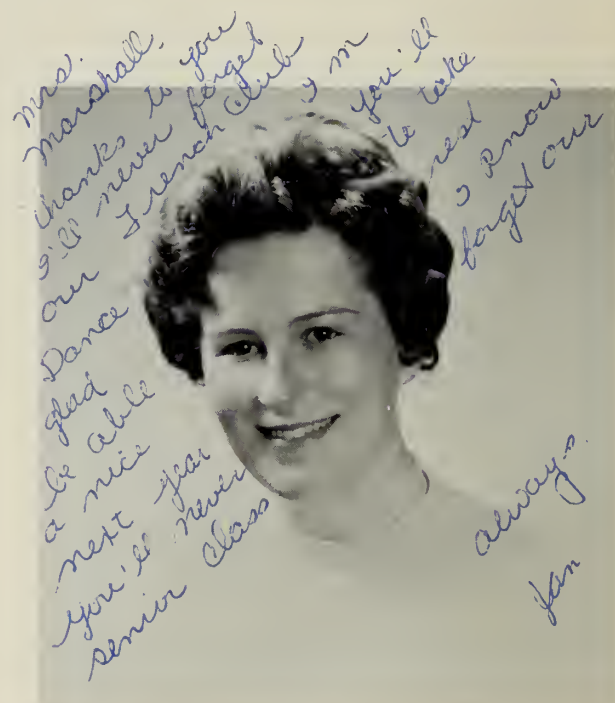 Mrs.
Marshall,
thanks to you
I'll never forget
our French Club
Dance I'm
glad you'll
be able to take
a nice rest
next year I know
you'll never forget our
senior class
always
Jan